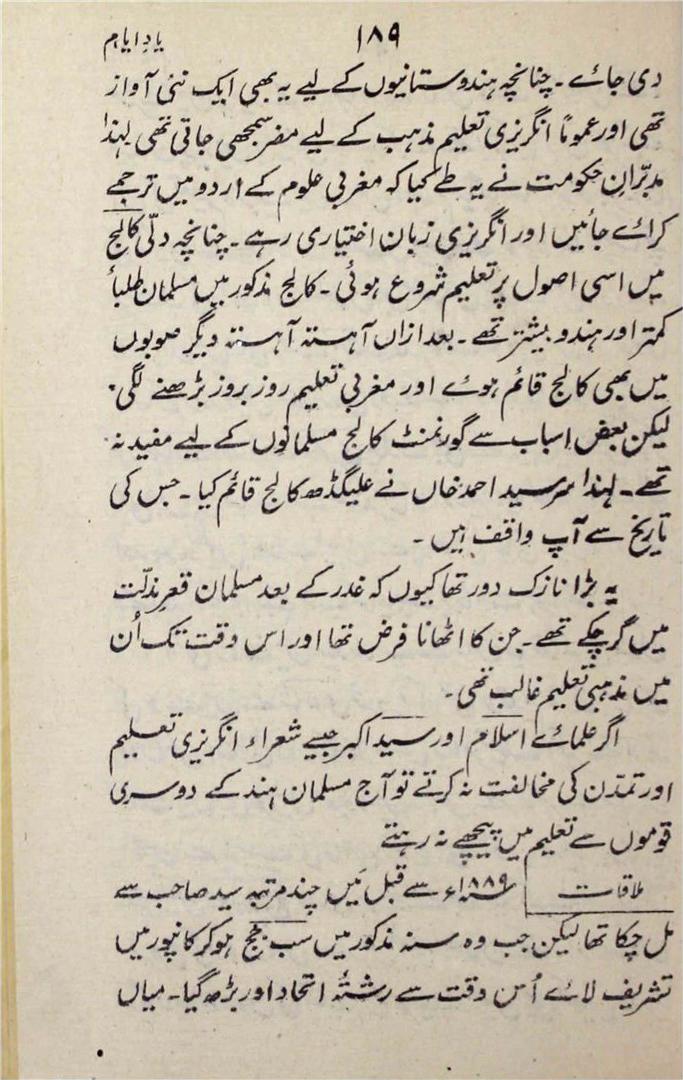 ۱۸۹ یادِ ایام
دی جائے ۔ چنانچہ ہندوستانیوں کے لیے یہ بھی ایک نئی آواز
تھی اور عموماً انگریزی تعلیم مذہب کے لیے مضر سمجھی جاتی تھی لہٰذا
مدبّرانِ حکومت نے یہ طے کیا کہ مغربی علوم کے اردو میں ترجمے
کرائے جائیں اور انگریزی زبان اختیاری رہے ۔ چنانچہ دلّی کالج
میں اسی اصول پر تعلیم شروع ہوئی ۔ کالج مذکور میں مسلمان طلبأ
کمتر اور ہندو بیشتر تھے ۔ بعد ازاں آہستہ آہستہ دیگر صوبوں
میں بھی کالج قائم ہوئے اور مغربی تعلیم روز بروز بڑھنے لگی ۔
لیکن بعض اسباب سے گورنمنٹ کالج مسلمانوں کے لیے مفید نہ
تھے ۔ لہٰذا سرسید احمد خاں نے علیگڈھ کالج قائم کیا ۔ جس کی
تاریخ سے آپ واقف ہیں ۔
یہ بڑا نازک دور تھا کیوں کہ غدر کے بعد مسلمان قعرِ مذلّت
میں گرچکے تھے ۔ جن کا اٹھانا فرض تھا اور اس وقت تک اُن
میں مذہبی تعلیم غالب تھی ۔
اگر علمائے اسلام اور سید اکبر جیسے شعراء انگریزی تعلیم
اور تمدّن کی مخالفت نہ کرتے تو آج مسلمان ہند کے دوسری
قوموں سے تعلیم میں پیچھے نہ رہتے
ملاقات ۱۸۸۹ء سے قبل مَیں چند مرتبہ سید صاحب سے
مل چکا تھا لیکن جب وہ سنہ مذکور میں سب جج ہوکر کانپور میں
تشریف لائے اُس وقت سے رشتۂ اتحاد اور بڑھ گیا ۔ میاں